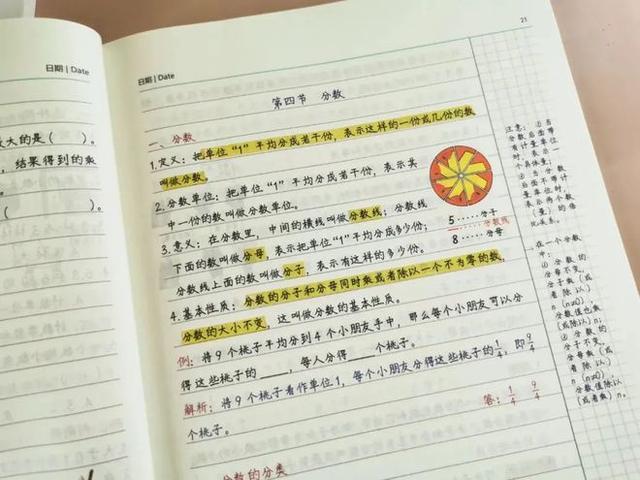 日期 | Date
大的是（ ）。
，结果得到的乘
（ ）。
21
日期 | Date
第四节 分数
一、分数
1.定义：把单位“1”平均分成若干份，表示这样的一份或几份的数
叫做分数。
2.分数单位：把单位“1”平均分成若干份，表示其
中一份的数叫做分数单位。
3.意义：在分数里，中间的横线叫做分数线；分数线
下面的数叫做分母，表示把单位“1”平均分成多少份；
分数线上面的数叫做分子，表示有这样的多少份。
5……分子
……分数线
8……分母
4.基本性质：分数的分子和分母同时乘或者除以一个不为零的数，
分数的大小不变，这叫做分数的基本性质。
例：将9个桃子平均分到4个小朋友手中，那么每个小朋友可以分
得这些桃子的____，每人分得____个桃子。
解析：将9个桃子看作单位1，每个小朋友分得这些桃子的1/4，即9/4
个桃子。
答：1/4 9/4
分数的分类
注意：①当
分数后面带
有计量单位
时，表示
一个具体量；
②当分
数后面不带计
量单位时，
表示两个数
（量）的倍
比关系。
在一个分数
中，
①分数的
分母不变，
分子乘（或
者除以）n
(n≠0)
分数值也乘
(或除以)n；
②分数的
分子不变，
分母乘（或
者除以）
n(n≠0)
分数值除以
(或者乘)n。